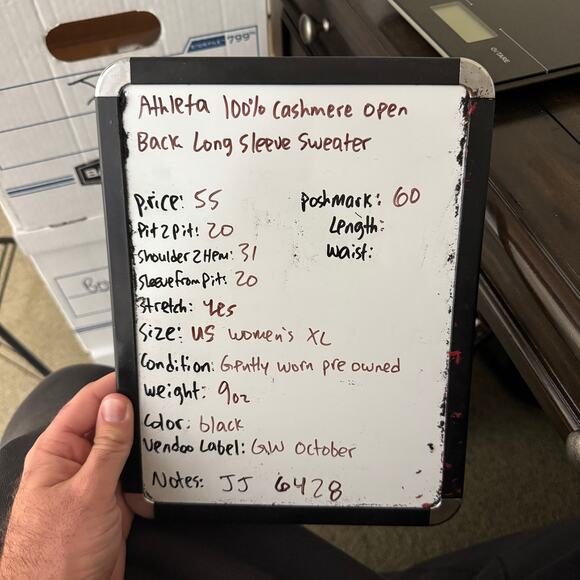 Athleta 100% Cashmere open
Back Long Sleeve Sweater
price: 55
Poshmark: 60
Pit2pit: 20
Length:
Shoulder2Hem: 31
Waist:
Sleevefrompit: 20
Stretch: Yes
Size: US Women's XL
Condition: Gently worn pre owned
Weight: 9oz
Color: black
Vendoo Label: GW October
Notes: JJ 6428
799